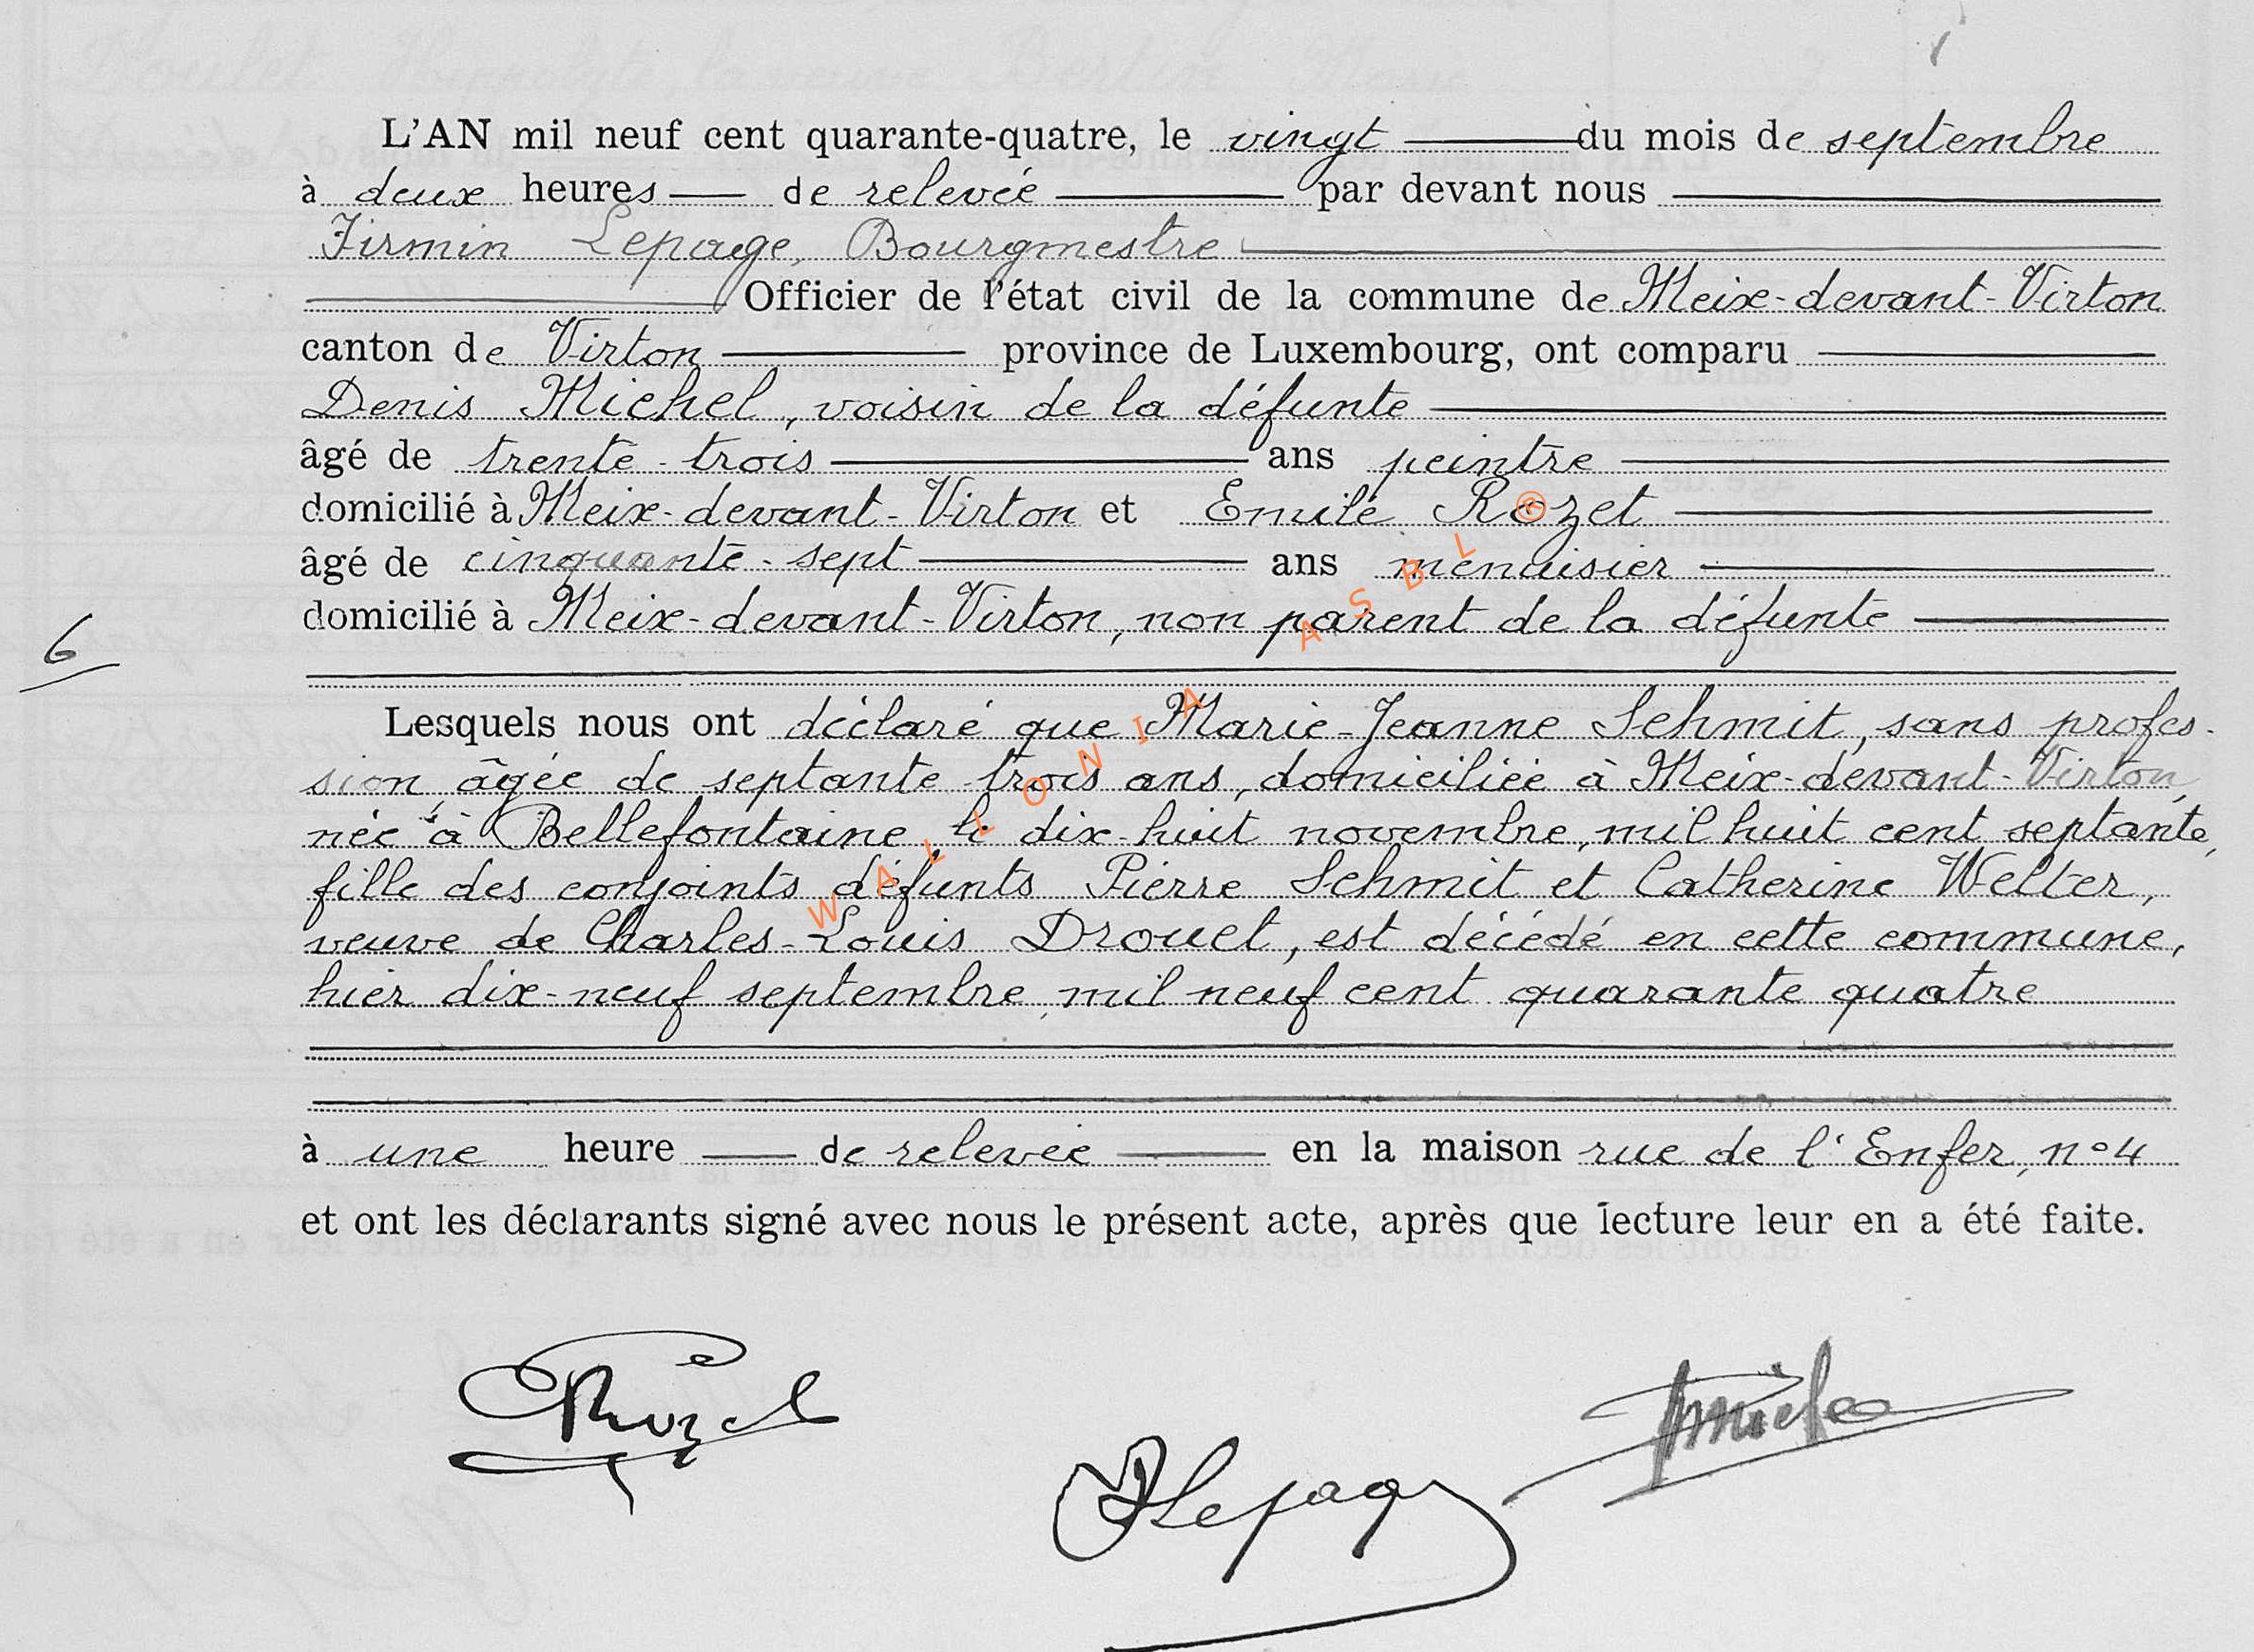 L'AN mil neuf cent quarante-quatre, le vingt du mois de septembre
à deux heures de relevée par devant nous
Firmin Lepage, Bourgmestre
Officier de l'état civil de la commune de Meix-devant-Virton
canton de Virton province de Luxembourg, ont comparu
Denis Michel, voisin de la défunte
âgé de trente-trois ans peintre
domicilié à Meix-devant-Virton et Emile Rozet
âgé de cinquante-sept ans menuisier
domicilié à Meix-devant-Virton, non parent de la défunte
6
Lesquels nous ont déclaré que Marie-Jeanne Schmit, sans profes-
sion, âgée de septante-trois ans, domiciliée à Meix-devant-Virton,
née à Bellefontaine, le dix-huit novembre, mil huit cent septante,
fille des conjoints défunts Pierre Schmit et Catherine Welter,
veuve de Charles-Louis Drouet, est décédé en cette commune,
hier dix-neuf septembre, mil neuf cent quarante quatre
à une heure de relevée en la maison rue de l'Enfer, n° 4
et ont les déclarants signé avec nous le présent acte, après que lecture leur en a été faite.
ERozet
FLepage
WALLONIA ASBL ®